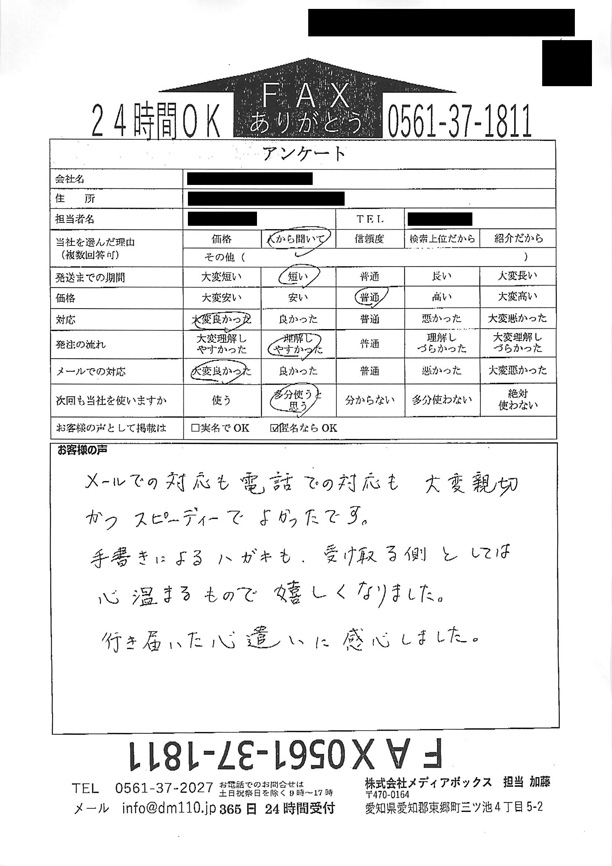 FAX
ありがとう
24時間OK
0561-37-1811
アンケート
会社名
住 所
担当者名 TEL
当社を選んだ理由 (複数回答可) 価格 人から聞いて 信頼度 検索上位だから 紹介だから
その他 ( )
発送までの期間 大変短い 短い 普通 長い 大変長い
価格 大変安い 安い 普通 高い 大変高い
対応 大変良かった 良かった 普通 悪かった 大変悪かった
発注の流れ 大変理解しやすかった 理解しやすかった 普通 理解しづらかった 大変理解しづらかった
メールでの対応 大変良かった 良かった 普通 悪かった 大変悪かった
次回も当社を使いますか 使う 多分使うと思う 分からない 多分使わない 絶対使わない
お客様の声として掲載は □実名でOK ☑匿名ならOK
お客様の声
メールでの対応も電話での対応も 大変親切
かつ スピーディーで よかったです。
手書きによるハガキも、受け取る側としては
心温まるもので嬉しくなりました。
行き届いた心遣いに感心しました。
FAX0561-37-1811
TEL 0561-37-2027 お電話でのお問合せは
土日祝祭日を除く9時~17時
メール info@dm110.jp 365日 24時間受付
株式会社メディアボックス 担当 加藤
〒470-0164
愛知県愛知郡東郷町三ツ池4丁目5-2